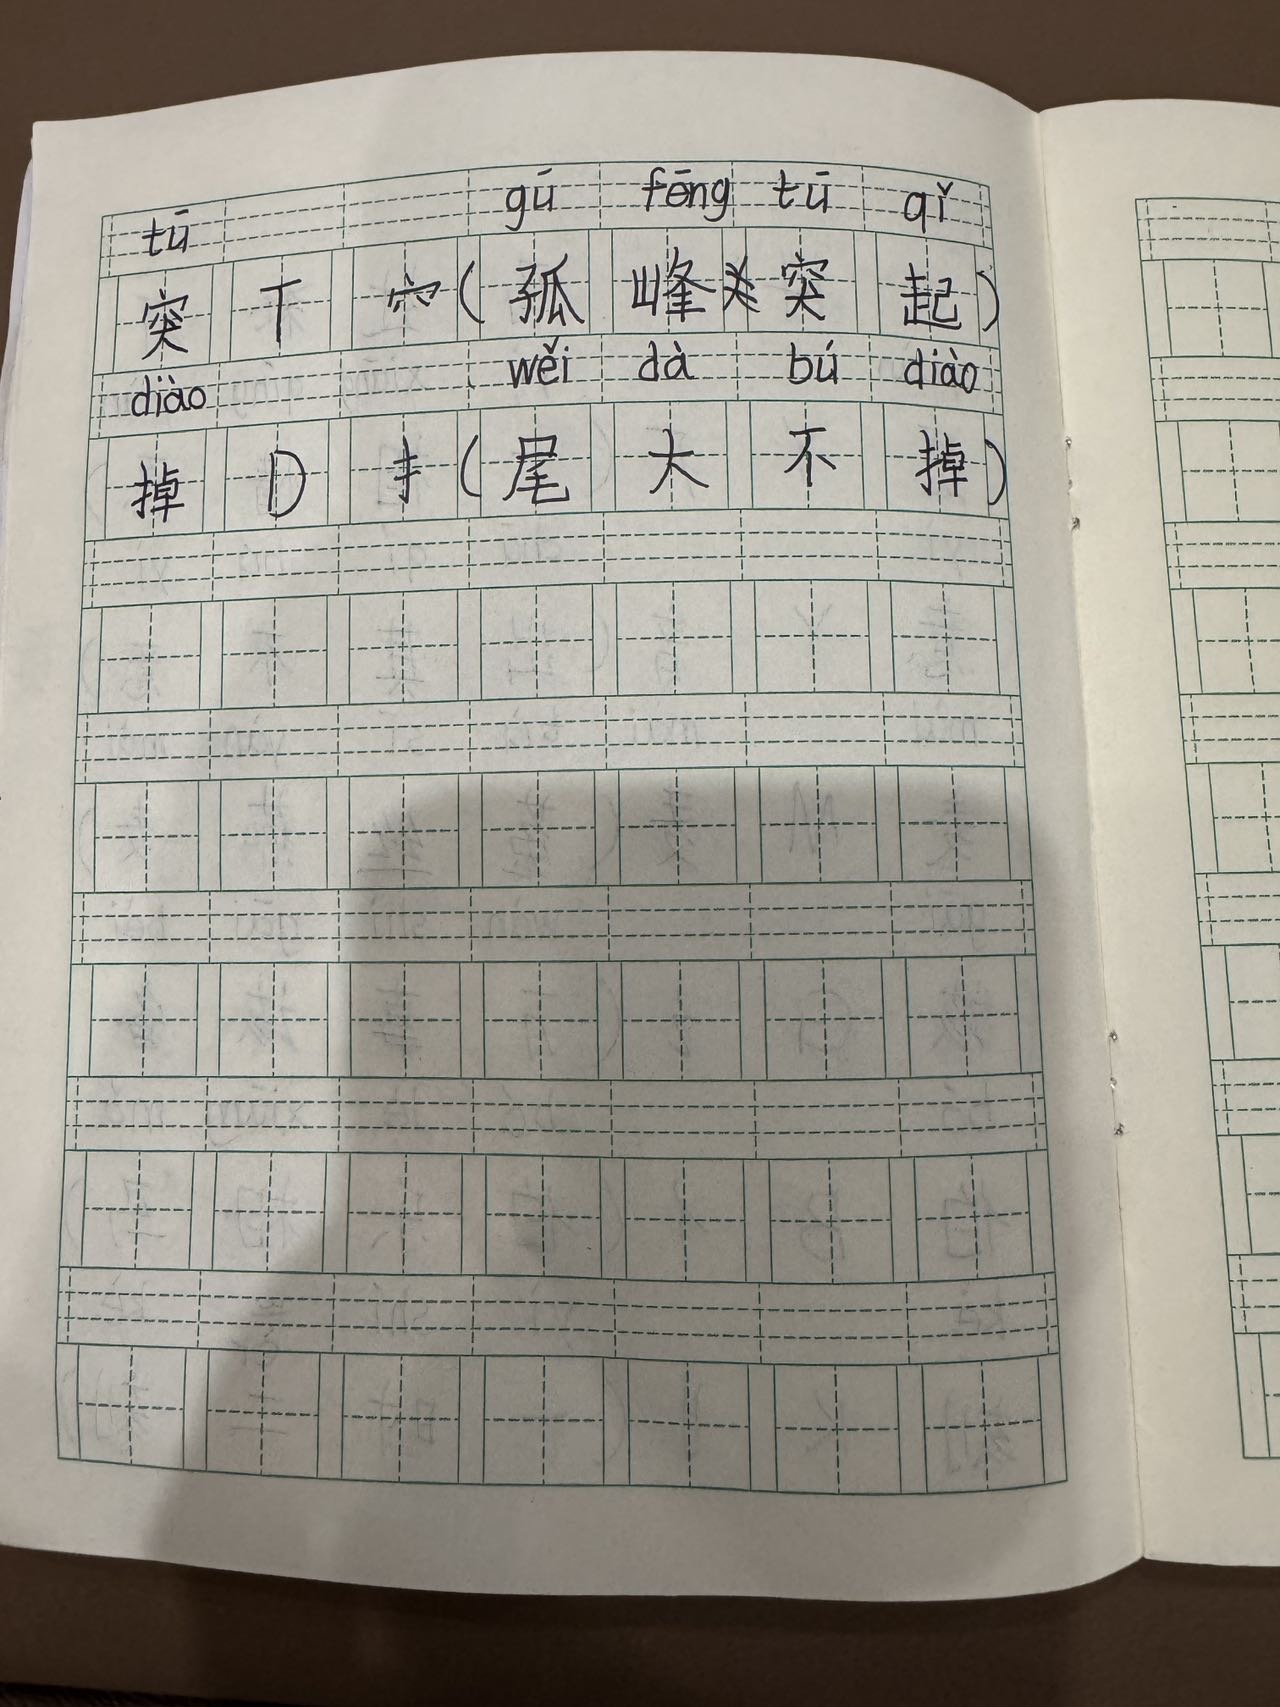 tū gū fēng tū qǐ
突 T 穴 ( 孤 峰 突 起 )
diào wěi dà bú diào
掉 D 扌 ( 尾 大 不 掉 )